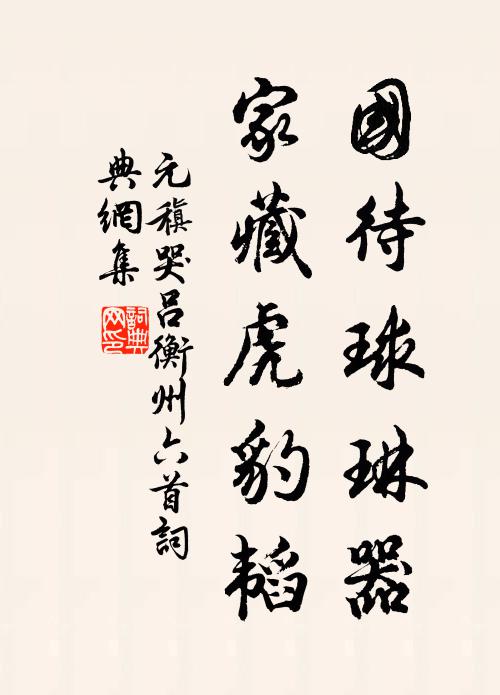 國待球琳器
家藏虎豹韜
元稹哭呂衡州六首詞
典網集
詞典
网印